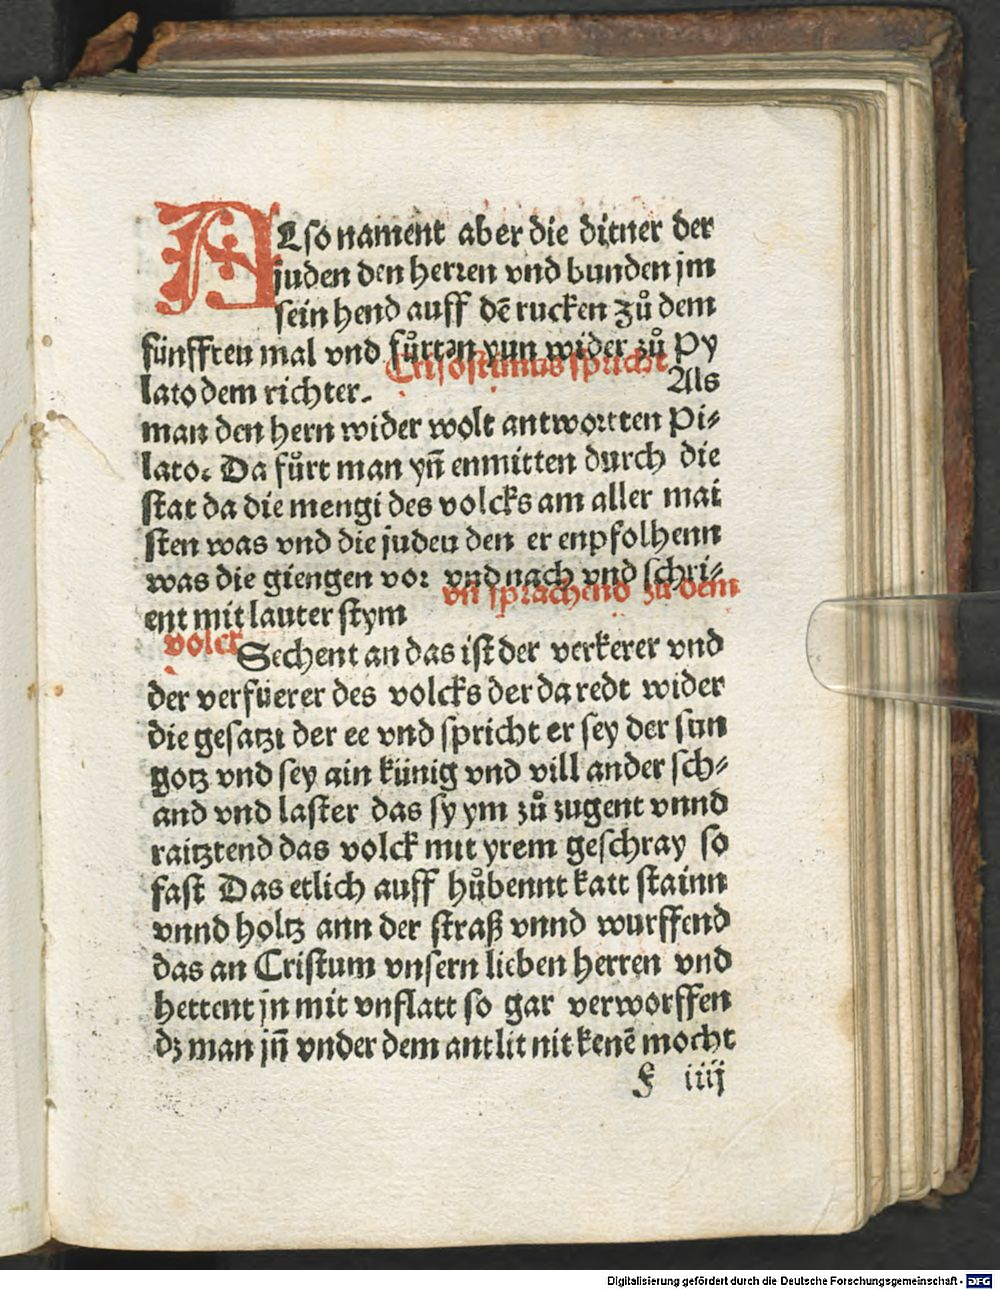 ALso nament aber die ditner der
juden den herren vnd bunden jm
sein hend auff dē rucken zů dem
fünfften mal vnd fůrten yun wider zů Py
lato dem richter. Crisostimus spricht Als
man den hern wider wolt antwortten Pi-
lato. Da fůrt man yn̄ enmitten durch die
stat da die mengi des volcks am aller mai
sten was vnd die juden den er enpfolhenn
was die giengen vor vnd nach vnd schri-
ent mit lauter stym vn̄ sprachend zu dem
volck Sechent an das ist der verkerer vnd
der verfüerer des volcks der da redt wider
die gesatzt der ee vnd spricht er sey der sun
gotz vnd sey ain künig vnd vill ander sch-
and vnd laster das sy ym zů zugent vnnd
raitztend das volck mit yrem geschray so
fast Das etlich auff hůbennt katt stainn
vnnd holtz ann der straß vnnd wurffend
das an Cristum vnsern lieben herren vnd
hettent jn mit vnflatt so gar verworffen
dz man jn̄ vnder dem antlit nit kenē mocht
f iiij
Digitalisierung gefördert durch die Deutsche Forschungsgemeinschaft - DFG